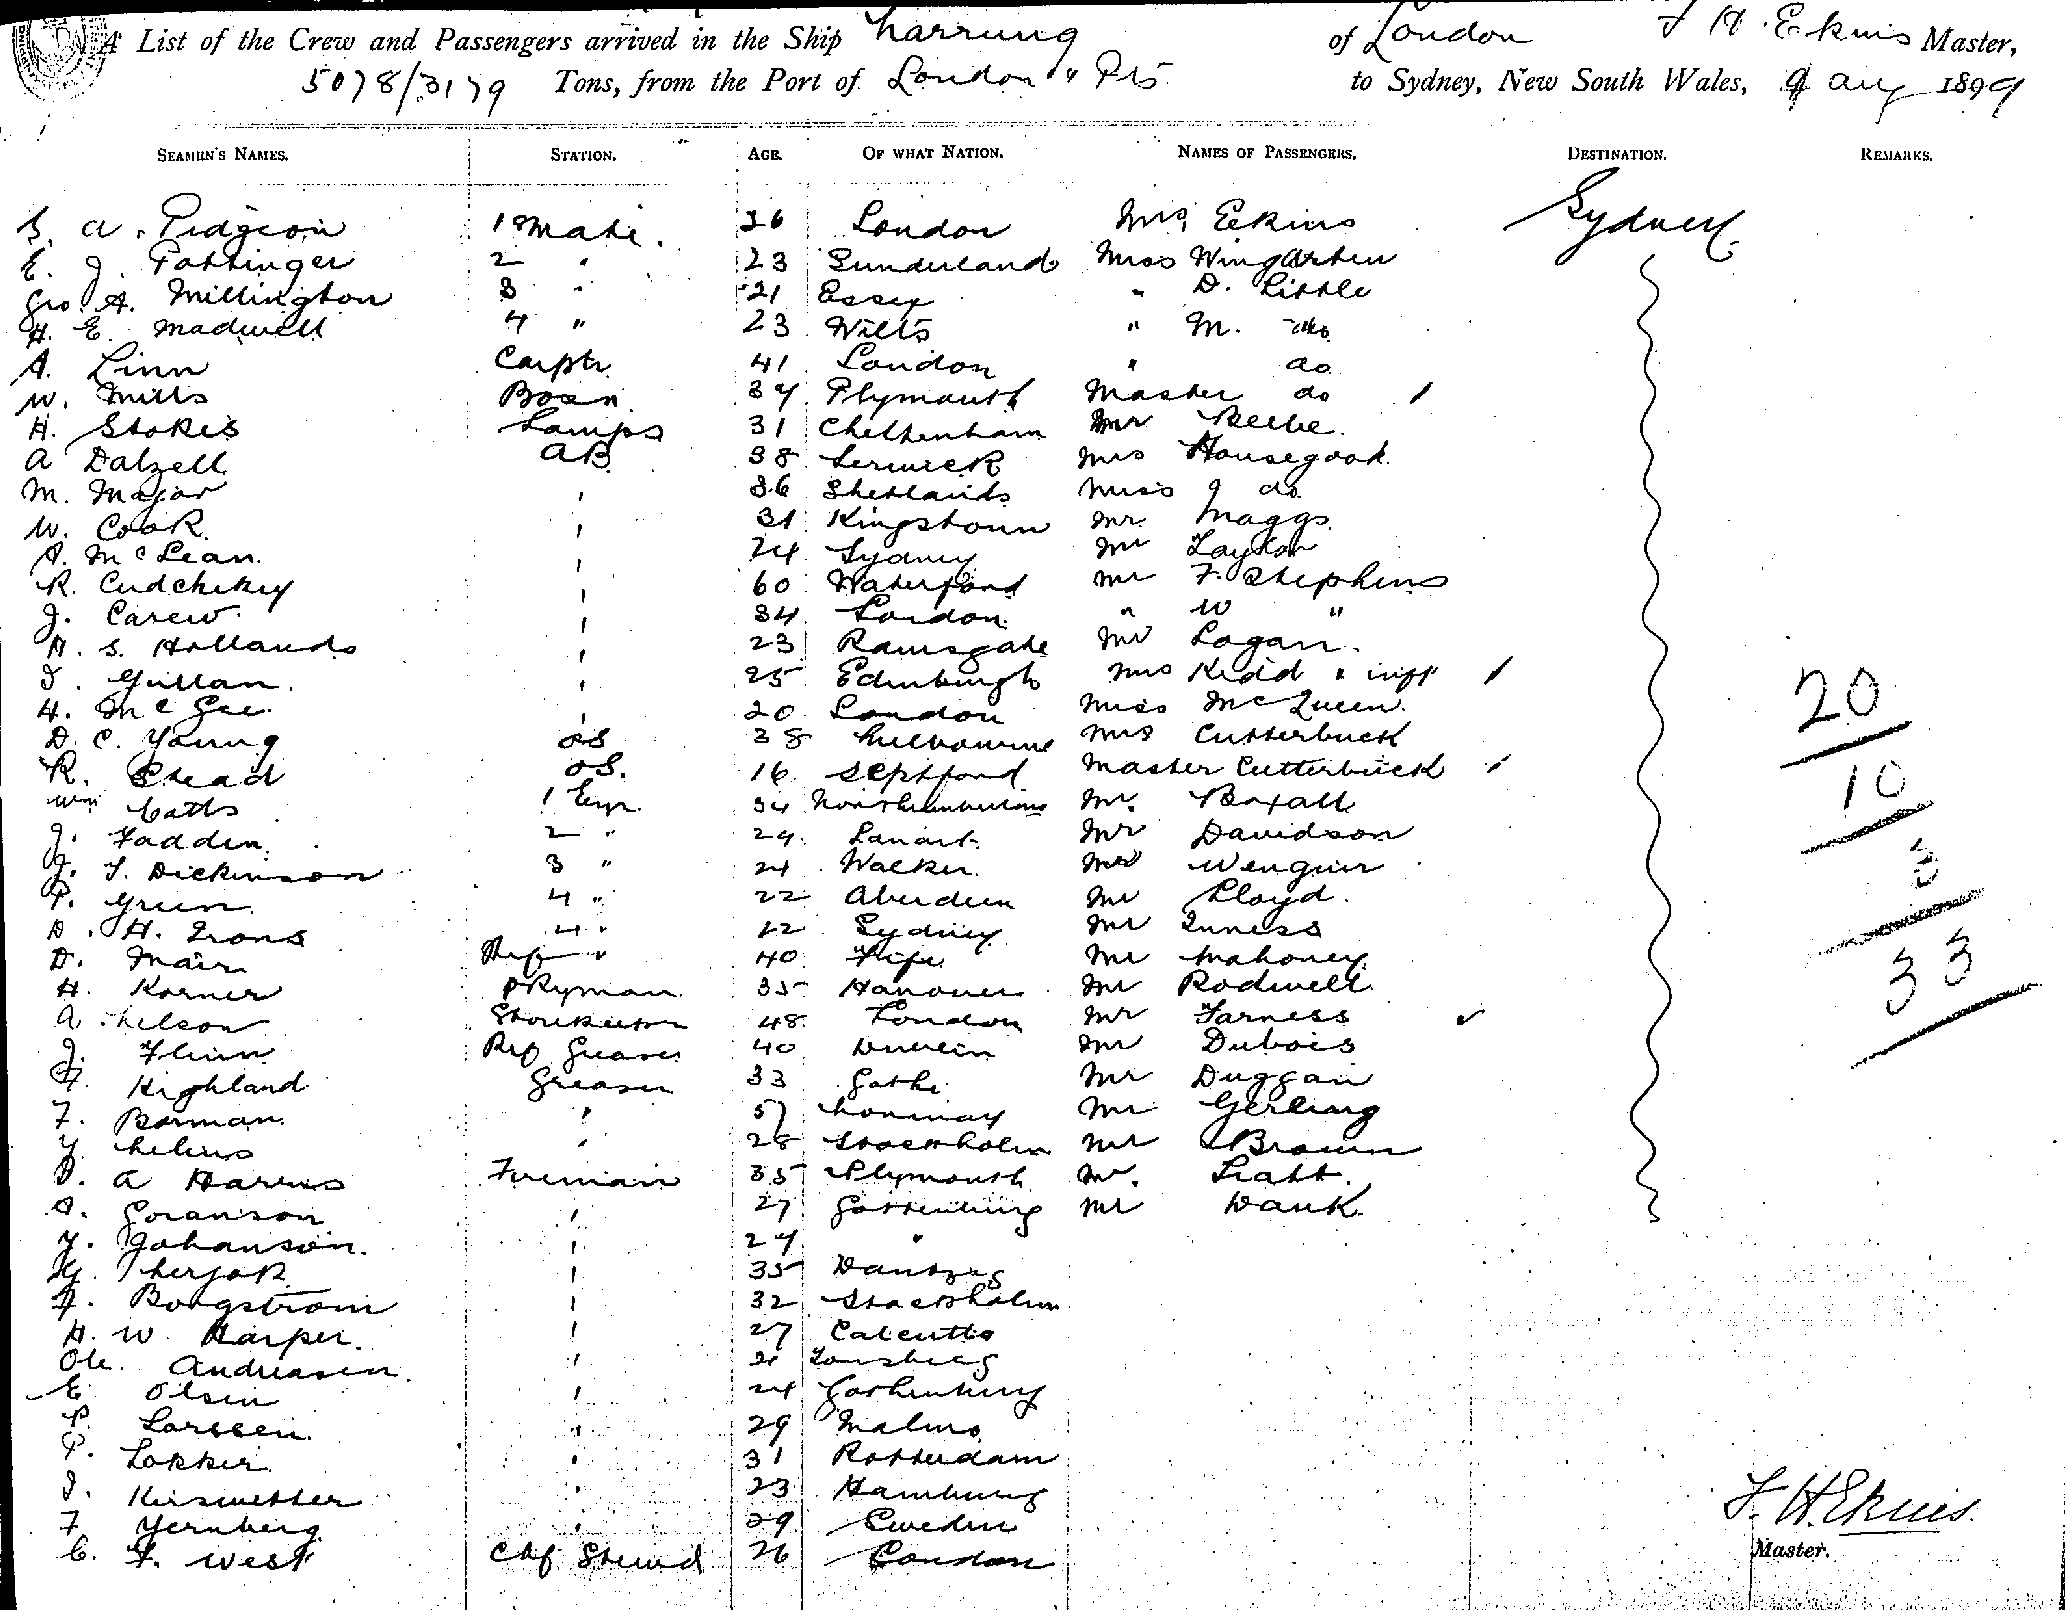 A List of the Crew and Passengers arrived in the Ship Narrung of London F H Ekins Master,
5078/3179 Tons, from the Port of London & Pts to Sydney, New South Wales, 9 Aug 1899
SEAMEN'S NAMES. STATION. AGE. OF WHAT NATION. NAMES OF PASSENGERS. DESTINATION. REMARKS.
S. A. Pidgeon 1st Mate. 36 London Mrs Ekins Sydney
E. J. Pottinger 2 " 23 Sunderland Miss Wingarten
Geo. A. Millington 3 " 21 Essex " D. Little
H. E. Madwell 4 " 23 Wilts " M. do
A. Linn Carptr. 41 London " do
W. Mills Bosn. 39 Plymouth Master do
H. Stokes Lamps 31 Cheltenham Mr Beebe.
A Dalzell AB 38 Lerwick Mrs Housegood.
M. Major " 36 Shetlands Miss J do
W. Cook. " 31 Kingstown Mr. Maggs.
A. McLean. " 24 Sydney Mr Taylor
R. " 60 Waterford Mr F. Stephens
J. Carew. " 34 London. " W "
H. S. Hollands " 23 Ramsgate Mr Logan.
J. Gillan. " 25 Edinburgh Mrs Kidd & inft
H. McGee. " 20 London Miss McQueen.
D. C. Young OS 38 Melbourne Mrs Cutterbuck
R. Stead OS. 16 Deptford Master Cutterbuck
Wm Catts 1 Engr. 34 Northumberland Mr. Boxall
J. Fadden. 2 " 29. Lanark. Mr Davidson
J. T. Dickinson 3 " 24 Walker. Mr
P. Green. 4 " 22 Aberdeen Mr Lloyd.
D. H. Irons 4 " 22 Sydney. Mr Inness
D. Mair Ref " 40 Fife Mr Mahoney.
H. Korner Dkyman. 35 Hanover Mr Rodwell
A Nelson Storekeeper 48 London Mr Farness
J. Flinn Ref Greaser 40 Dublin Mr Dubois
Highland Greaser 33 Gothe. Mr Duggan
F. Borman. " 57 Norway Mr Gerling
Nelius " 28 Stockholm Mr Brown
D. A Harris Fireman 35 Plymouth Mr. Liatt.
A. Goranson " 27. Gottenburg Mr Dank.
Y. Johanson. " 27 "
" 35 Dantzig
A. Borgstrom " 32 Stockholm
H. W. Harper. " 27 Calcutta
Ole. Andreasen. " 21 Tonsberg
E Olsen " 24 Gothenburg
P. Larssen. " 29 Malmo
P. Lokker " 31 Rotterdam
J. Kirswetter " 23 Hamburg
F Yernberg " 29 Sweden
C. F. West Chf Stewd 26 London
20
10
3
33
F. H. Ekins.
Master.